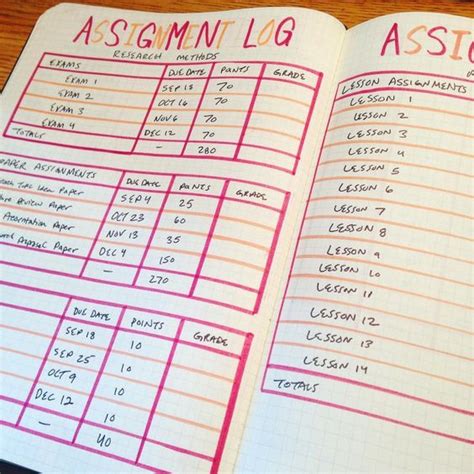 ASSIGNMENT LOG
RESEARCH METHODS
EXAMS DUE DATE POINTS GRADE
EXAM 1 SEP 18 70
EXAM 2 OCT 16 70
EXAM 3 NOV 6 70
EXAM 4 DEC 12 70
TOTALS — 280
PAPER ASSIGNMENTS DUE DATE POINTS GRADE
Idea Paper SEP 4 25
Review Paper OCT 23 60
Presentation Paper NOV 13 35
Proposal Paper DEC 4 150
— 270
DUE DATE POINTS GRADE
SEP 18 10
SEP 25 10
OCT 9 10
DEC 12 10
— 40
ASSIG
LESSON ASSIGNMENTS
LESSON 1
LESSON 2
LESSON 3
LESSON 4
LESSON 5
LESSON 6
LESSON 7
LESSON 8
LESSON 9
LESSON 10
LESSON 11
LESSON 12
LESSON 13
LESSON 14
TOTALS